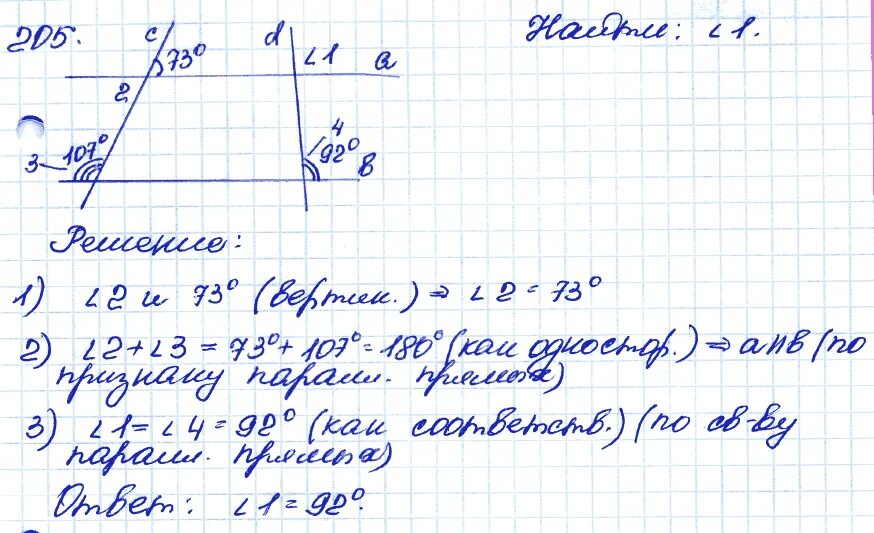 205.
Найти: ∠1.
c
73°
d
∠1
a
2
3
107°
4
92°
b
Решение:
1) ∠2 и 73° (вертик.) ⇒ ∠2 = 73°
2) ∠2+∠3 = 73°+107°=180° (как одностор.) ⇒ a∥b (по
признаку паралл. прямых)
3) ∠1=∠4=92° (как соответств.) (по св-ву
паралл. прямых)
Ответ: ∠1=92°.